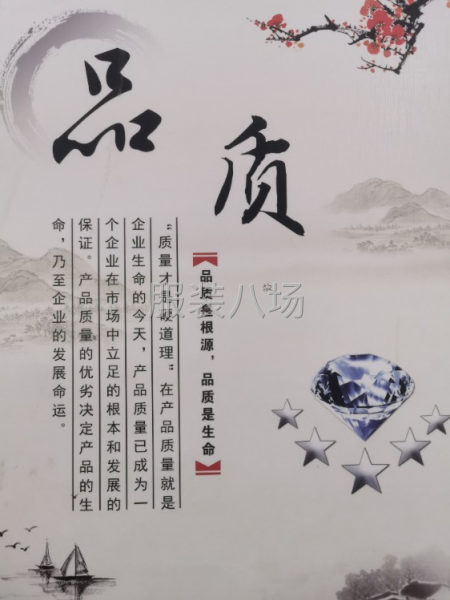 品质
品质是根源，品质是生命
“质量才是硬道理”在产品质量就是
企业生命的今天，产品质量已成为一
个企业在市场中立足的根本和发展的
保证。产品质量的优劣决定产品的生
命，乃至企业的发展命运。
服装八场